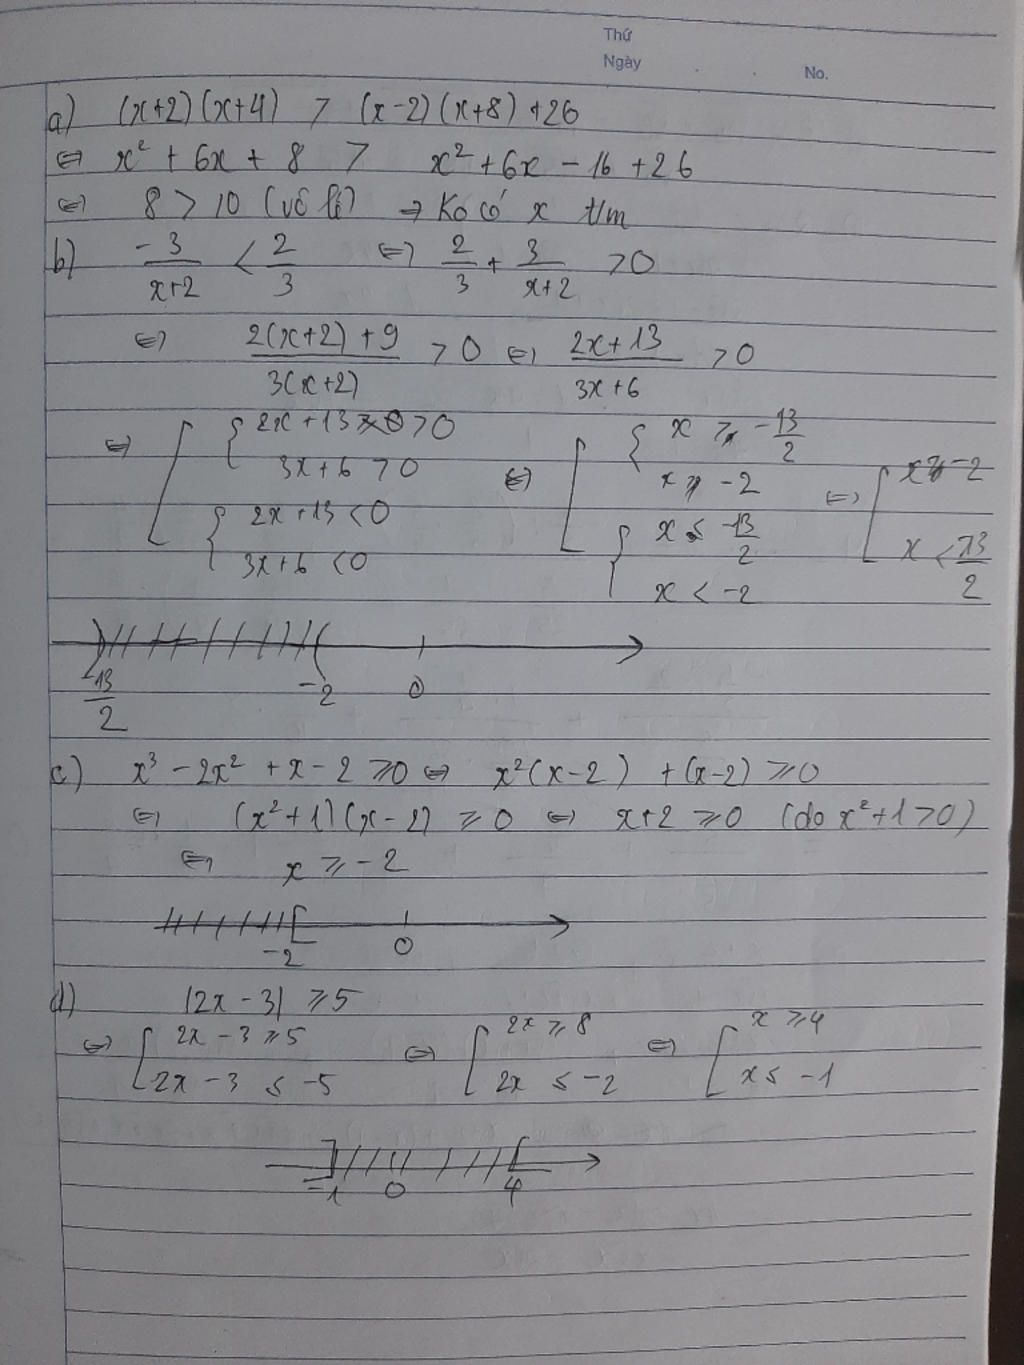 Thứ
Ngày . . No.
a) (x+2)(x+4) > (x-2)(x+8) +26
⇔ x² + 6x + 8 > x² + 6x - 16 + 26
⇔ 8 > 10 (vô lí) ⇒ Ko có x t/m
b) -3/(x+2) < 2/3 ⇔ 2/3 + 3/(x+2) > 0
⇔ (2(x+2)+9)/(3(x+2)) > 0 ⇔ (2x+13)/(3x+6) > 0
⇔ [ { 2x + 13 > 0 ⇔ [ { x > -13/2 ⇔ [ x > -2
3x + 6 > 0 x > -2
{ 2x + 13 < 0 { x < -13/2 x < -13/2
3x + 6 < 0 x < -2
-13/2 -2 0
c) x³ - 2x² + x - 2 ≥ 0 ⇔ x²(x-2) + (x-2) ≥ 0
⇔ (x²+1)(x-2) ≥ 0 ⇔ x+2 ≥ 0 (do x²+1>0)
⇔ x ≥ -2
-2 0
d) |2x - 3| ≥ 5
⇔ [ 2x - 3 ≥ 5 ⇔ [ 2x ≥ 8 ⇔ [ x ≥ 4
2x - 3 ≤ -5 2x ≤ -2 x ≤ -1
-1 0 4